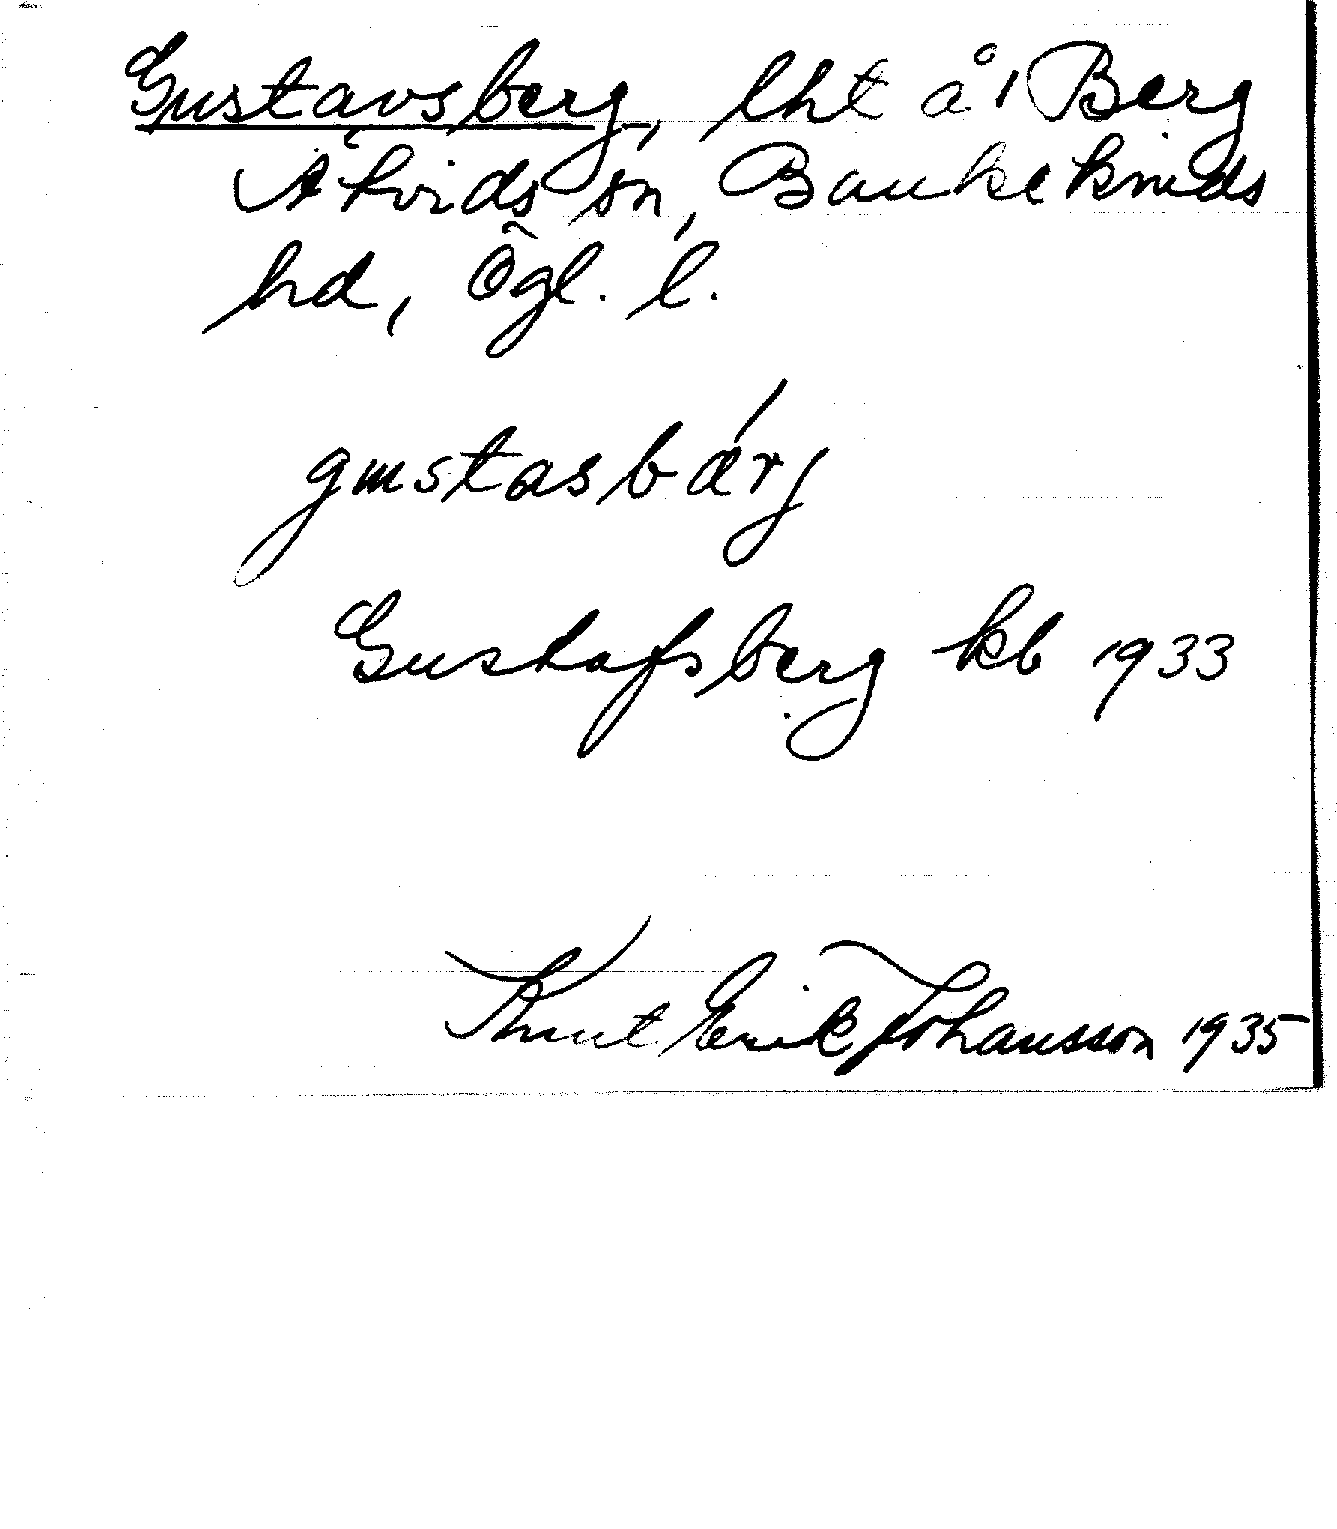 Gustavsberg, lht å 1 Berg
Åtvids sn, Bankekinds
hd, Ögl. l.
gustasbærj
Gustafsberg kb 1933
Knut Erik Johansson 1935